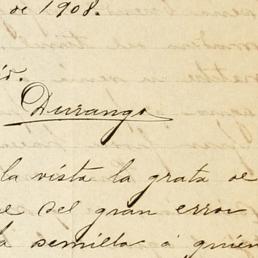 de 1908.
Durango
la vista la grata de
del gran error
la semilla á quien